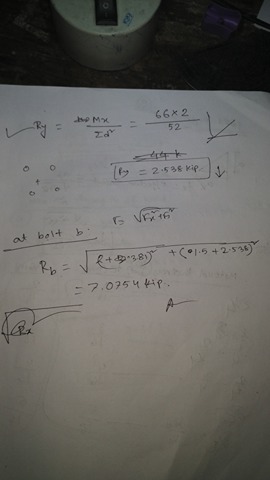 Ry = Mx / Σd² = 66×2 / 52
Ry = 2.538 kip. ↓
r = √Fx²+Fy²
at bolt b.
Rb = √( + .381)² + (1.5 + 2.538)²
= 7.0754 kip.
Rx